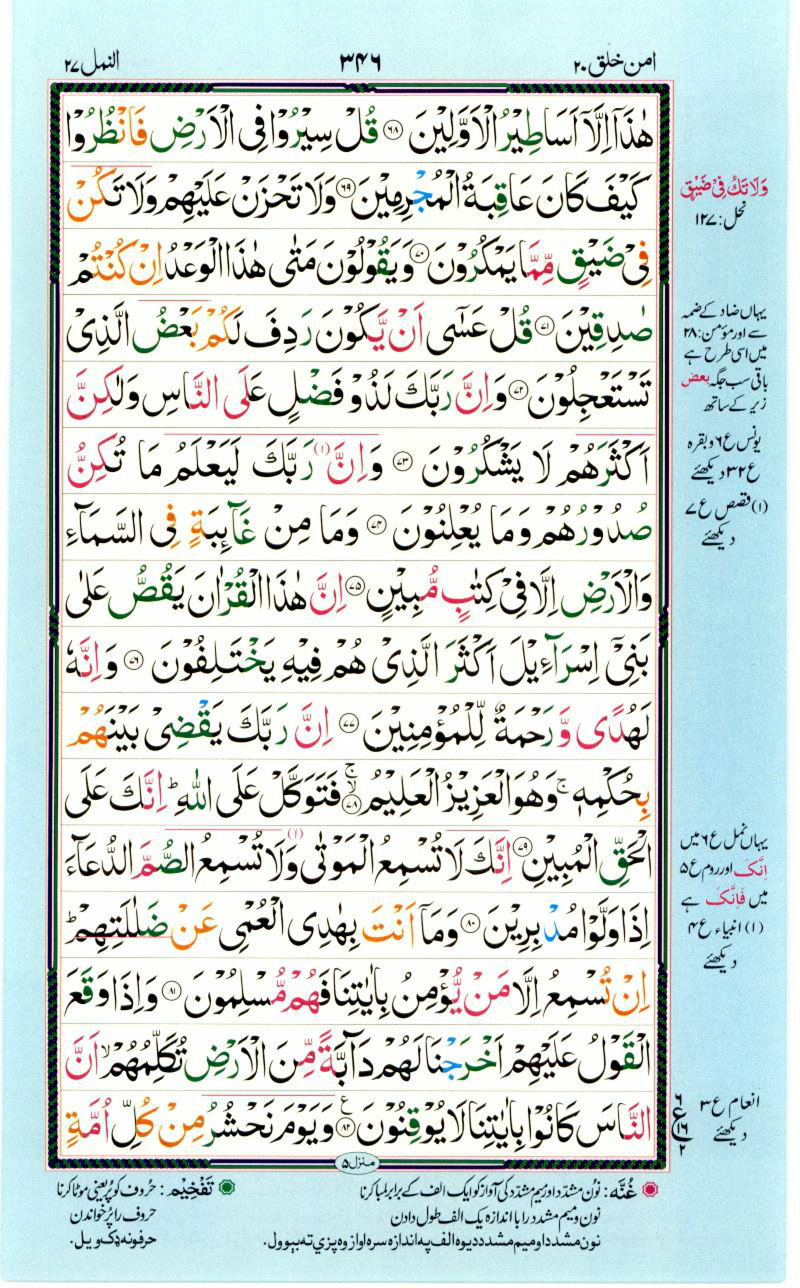 امن خلق ۲۰
۳۴۶
النمل ۲۷
هٰذَاۤ اِلَّاۤ اَسَاطِيْرُ الْاَوَّلِيْنَ ۶۸ قُلْ سِيْرُوْا فِى الْاَرْضِ فَانْظُرُوْا
كَيْفَ كَانَ عَاقِبَةُ الْمُجْرِمِيْنَ ۶۹ وَلَا تَحْزَنْ عَلَيْهِمْ وَلَا تَكُنْ
فِىْ ضَيْقٍ مِّمَّا يَمْكُرُوْنَ ۷۰ وَيَقُوْلُوْنَ مَتٰى هٰذَا الْوَعْدُ اِنْ كُنْتُمْ
صٰدِقِيْنَ ۷۱ قُلْ عَسٰۤى اَنْ يَّكُوْنَ رَدِفَ لَكُمْ بَعْضُ الَّذِىْ
تَسْتَعْجِلُوْنَ ۷۲ وَاِنَّ رَبَّكَ لَذُوْ فَضْلٍ عَلَى النَّاسِ وَلٰكِنَّ
اَكْثَرَهُمْ لَا يَشْكُرُوْنَ ۷۳ وَاِنَّ (۱) رَبَّكَ لَيَعْلَمُ مَا تُكِنُّ
صُدُوْرُهُمْ وَمَا يُعْلِنُوْنَ ۷۴ وَمَا مِنْ غَآئِبَةٍ فِى السَّمَآءِ
وَالْاَرْضِ اِلَّا فِىْ كِتٰبٍ مُّبِيْنٍ ۷۵ اِنَّ هٰذَا الْقُرْاٰنَ يَقُصُّ عَلٰى
بَنِىْۤ اِسْرَآءِيْلَ اَكْثَرَ الَّذِىْ هُمْ فِيْهِ يَخْتَلِفُوْنَ ۷۶ وَاِنَّهٗ
لَهُدًى وَّرَحْمَةٌ لِّلْمُؤْمِنِيْنَ ۷۷ اِنَّ رَبَّكَ يَقْضِىْ بَيْنَهُمْ
بِحُكْمِهٖ ۚ وَهُوَ الْعَزِيْزُ الْعَلِيْمُ ۷۸ ۚ فَتَوَكَّلْ عَلَى اللّٰهِ ؕ اِنَّكَ عَلَى
الْحَقِّ الْمُبِيْنِ ۷۹ اِنَّكَ لَا تُسْمِعُ الْمَوْتٰى (۱) وَلَا تُسْمِعُ الصُّمَّ الدُّعَآءَ
اِذَا وَلَّوْا مُدْبِرِيْنَ ۸۰ وَمَاۤ اَنْتَ بِهٰدِى الْعُمْىِ عَنْ ضَلٰلَتِهِمْ ؕ
اِنْ تُسْمِعُ اِلَّا مَنْ يُّؤْمِنُ بِاٰيٰتِنَا فَهُمْ مُّسْلِمُوْنَ ۸۱ وَاِذَا وَقَعَ
الْقَوْلُ عَلَيْهِمْ اَخْرَجْنَا لَهُمْ دَآبَّةً مِّنَ الْاَرْضِ تُكَلِّمُهُمْ ۙ اَنَّ
النَّاسَ كَانُوْا بِاٰيٰتِنَا لَا يُوْقِنُوْنَ ۸۲ ع وَيَوْمَ نَحْشُرُ مِنْ كُلِّ اُمَّةٍ
منزل ۵
وَلَا تَكُ فِىْ ضَيْقٍ
نحل: ۱۲۷
یہاں ضاد کے ضمہ
سے اور مؤمن: ۲۸
میں اسی طرح ہے
باقی سب جگہ بعض
زیر کے ساتھ
یونس ع ۶ و بقرہ
ع ۳۲ دیکھئے
(۱) قصص ع ۷
دیکھئے
یہاں نمل ع ۶ میں
اِنَّکَ اور روم ع ۵
میں فَاِنَّکَ ہے
(۱) انبیاء ع ۴
دیکھئے
انعام ع ۳
دیکھئے
۶
ع
۱۶
۲
غُنَّه: نون مشدد اور میم مشدد کی آواز کو ایک الف کے برابر لمبا کرنا
نون و میم مشدد را با اندازه یک الف طول دادن
نون مشدد او میم مشدد دیوه الف په اندازه سره اواز وه پزې ته بېوول.
تَفْخِیْم: حروف کو پُر یعنی موٹا کرنا
حروف را پُر خواندن
حرفونه ډک ویل.